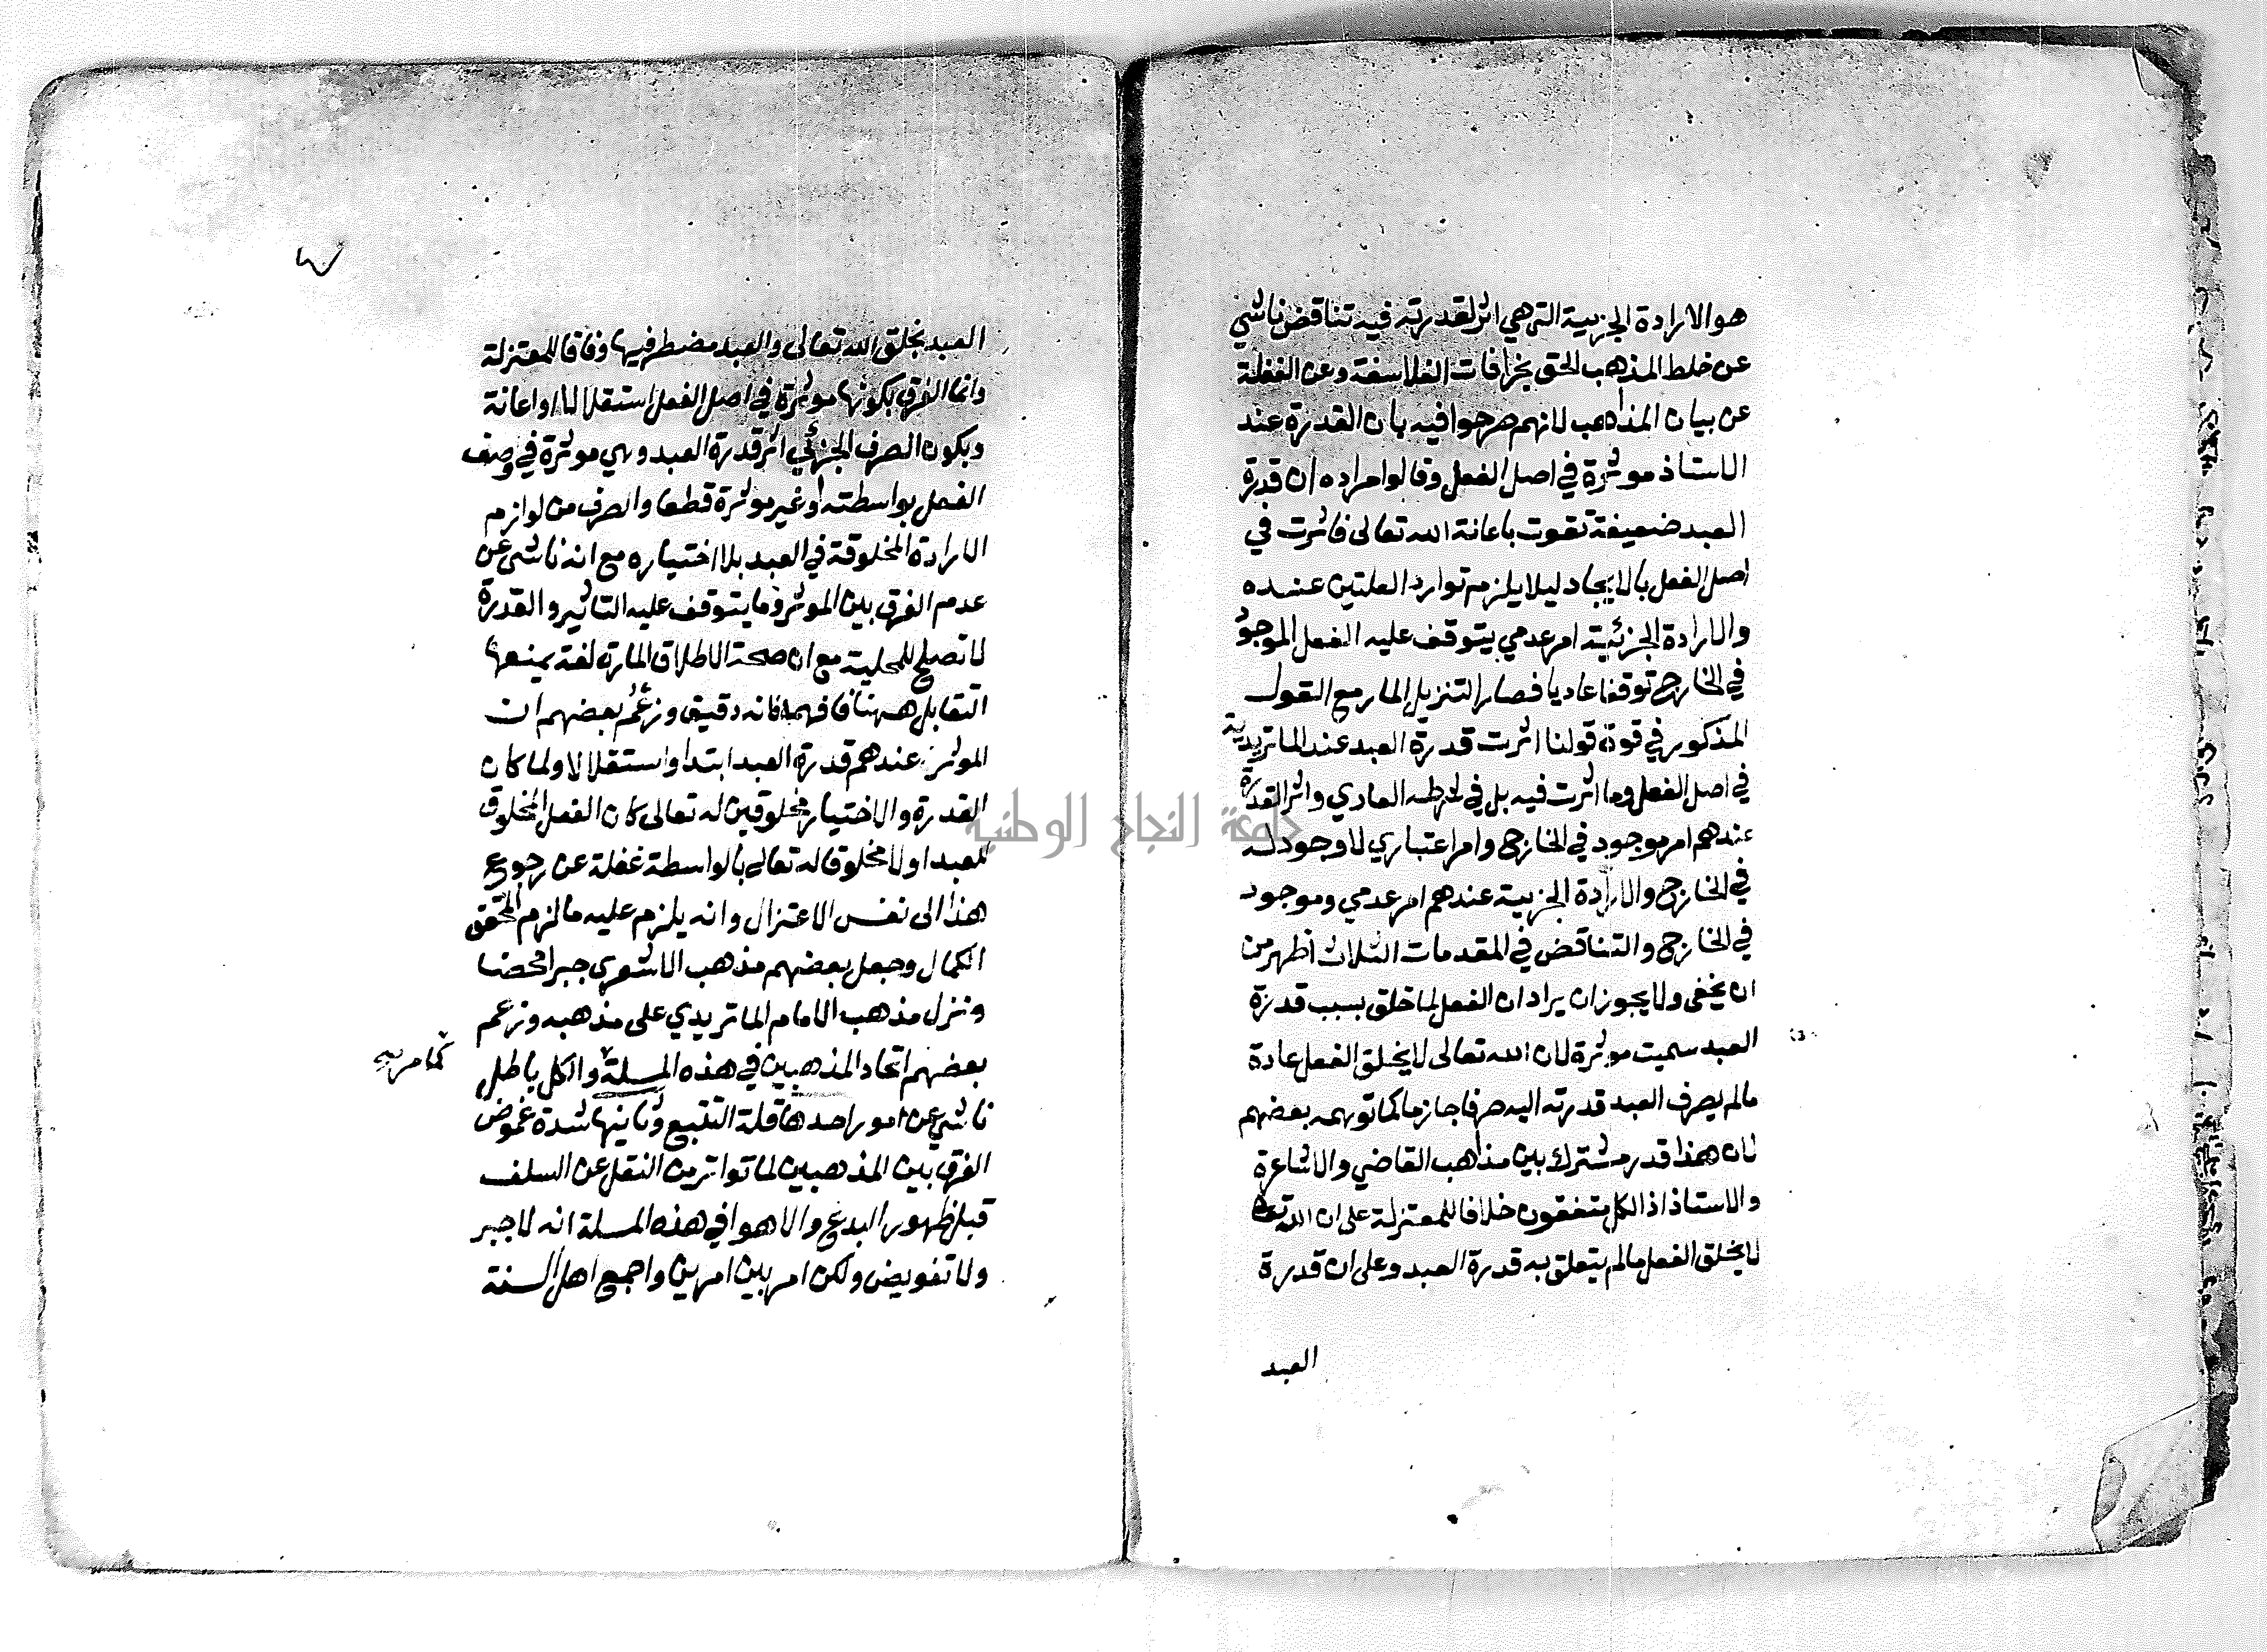 هو الارادة الجزيية التي هي اثر لقدرته فيه تناقض ناشي
عن خلط المذهب الحق بخرافات الفلاسفة وعن الغفلة
عن بيان المذاهب لانهم صرحوا فيه بان القدرة عند
الاستاذ موثرة في اصل الفعل وقالوا مراده ان قدرة
العبد ضعيفة تقوت باعانة الله تعالى فاثرت في
اصل الفعل بالايجاد ليلا يلزم توارد العلتين عنده
والارادة الجزئية امر عدمي يتوقف عليه الفعل الموجود
في الخارج توقفا عاديا فصار التنزيل المار مع القول
المذكور في قوة قولنا اثرت قدرة العبد عند الماتريدية
في اصل الفعل وما اثرت فيه بل في شرطه العادي واثر القدرة
عندهم امر موجود في الخارج وامر اعتباري لا وجود له
في الخارج والارادة الجزيية عندهم امر عدمي وموجود
في الخارج والتناقض في المقدمات الثلاث اظهر من
ان يخفى ولا يجوز ان يراد ان الفعل لما خلق بسبب قدرة
العبد سميت موثرة لان الله تعالى لا يخلق الفعل عادة
مالم يصرف العبد قدرته اليه صرفا جازما كما توهمه بعضهم
لان هذا قدر مشترك بين مذاهب القاضي والاشاعرة
والاستاذ اذ الكل يتفقون خلافا للمعتزلة على ان الله تعالى
لا يخلق الفعل مالم يتعلق به قدرة العبد وعلى ان قدرة
العبد
العبد بخلق الله تعالى والعبد مضطر فيها وفاقا للمعتزلة
وانما الفرق بكونها موثرة في اصل الفعل استقلالا او اعانة
وبكون الصرف الجزئي اثر قدرة العبد وهي موثرة في وصف
الفعل بواسطته او غير موثرة قطعا والصرف من لوازم
الارادة المخلوقة في العبد بلا اختياره مع انه ناشى عن
عدم الفرق بين الموثر وما يتوقف عليه التاثير والقدرة
لا تصلح للمحلية مع ان صحة الاطلاق المارة لغة يمنعها
التقابل ههنا فافهم فانه دقيق وزعم بعضهم ان
الموثر عندهم قدرة العبد ابتداء واستقلالا ولما كان
القدرة والاختيار مخلوقين له تعالى كان الفعل المخلوق
للعبد اولا مخلوقا له تعالى بالواسطة غفلة عن رجوع
هذا الى نفس الاعتزال وانه يلزم عليه ما لزم المحقق
الكمال وجعل بعضهم مذهب الاشعري جبرا محضا
ونزل مذهب الامام الماتريدي على مذهبه وزعم
بعضهم اتحاد المذهبين في هذه المسلة والكل باطل
ناشي عن امور احدها قلة التتبع وثانيها شدة غموض
الفرق بين المذهبين لما تواتر من النقل عن السلف
قبل ظهور البدع والاهوا في هذه المسلة انه لا جبر
ولا تفويض ولكن امر بين امرين واجمع اهل السنة
جامعة النجاح الوطنية